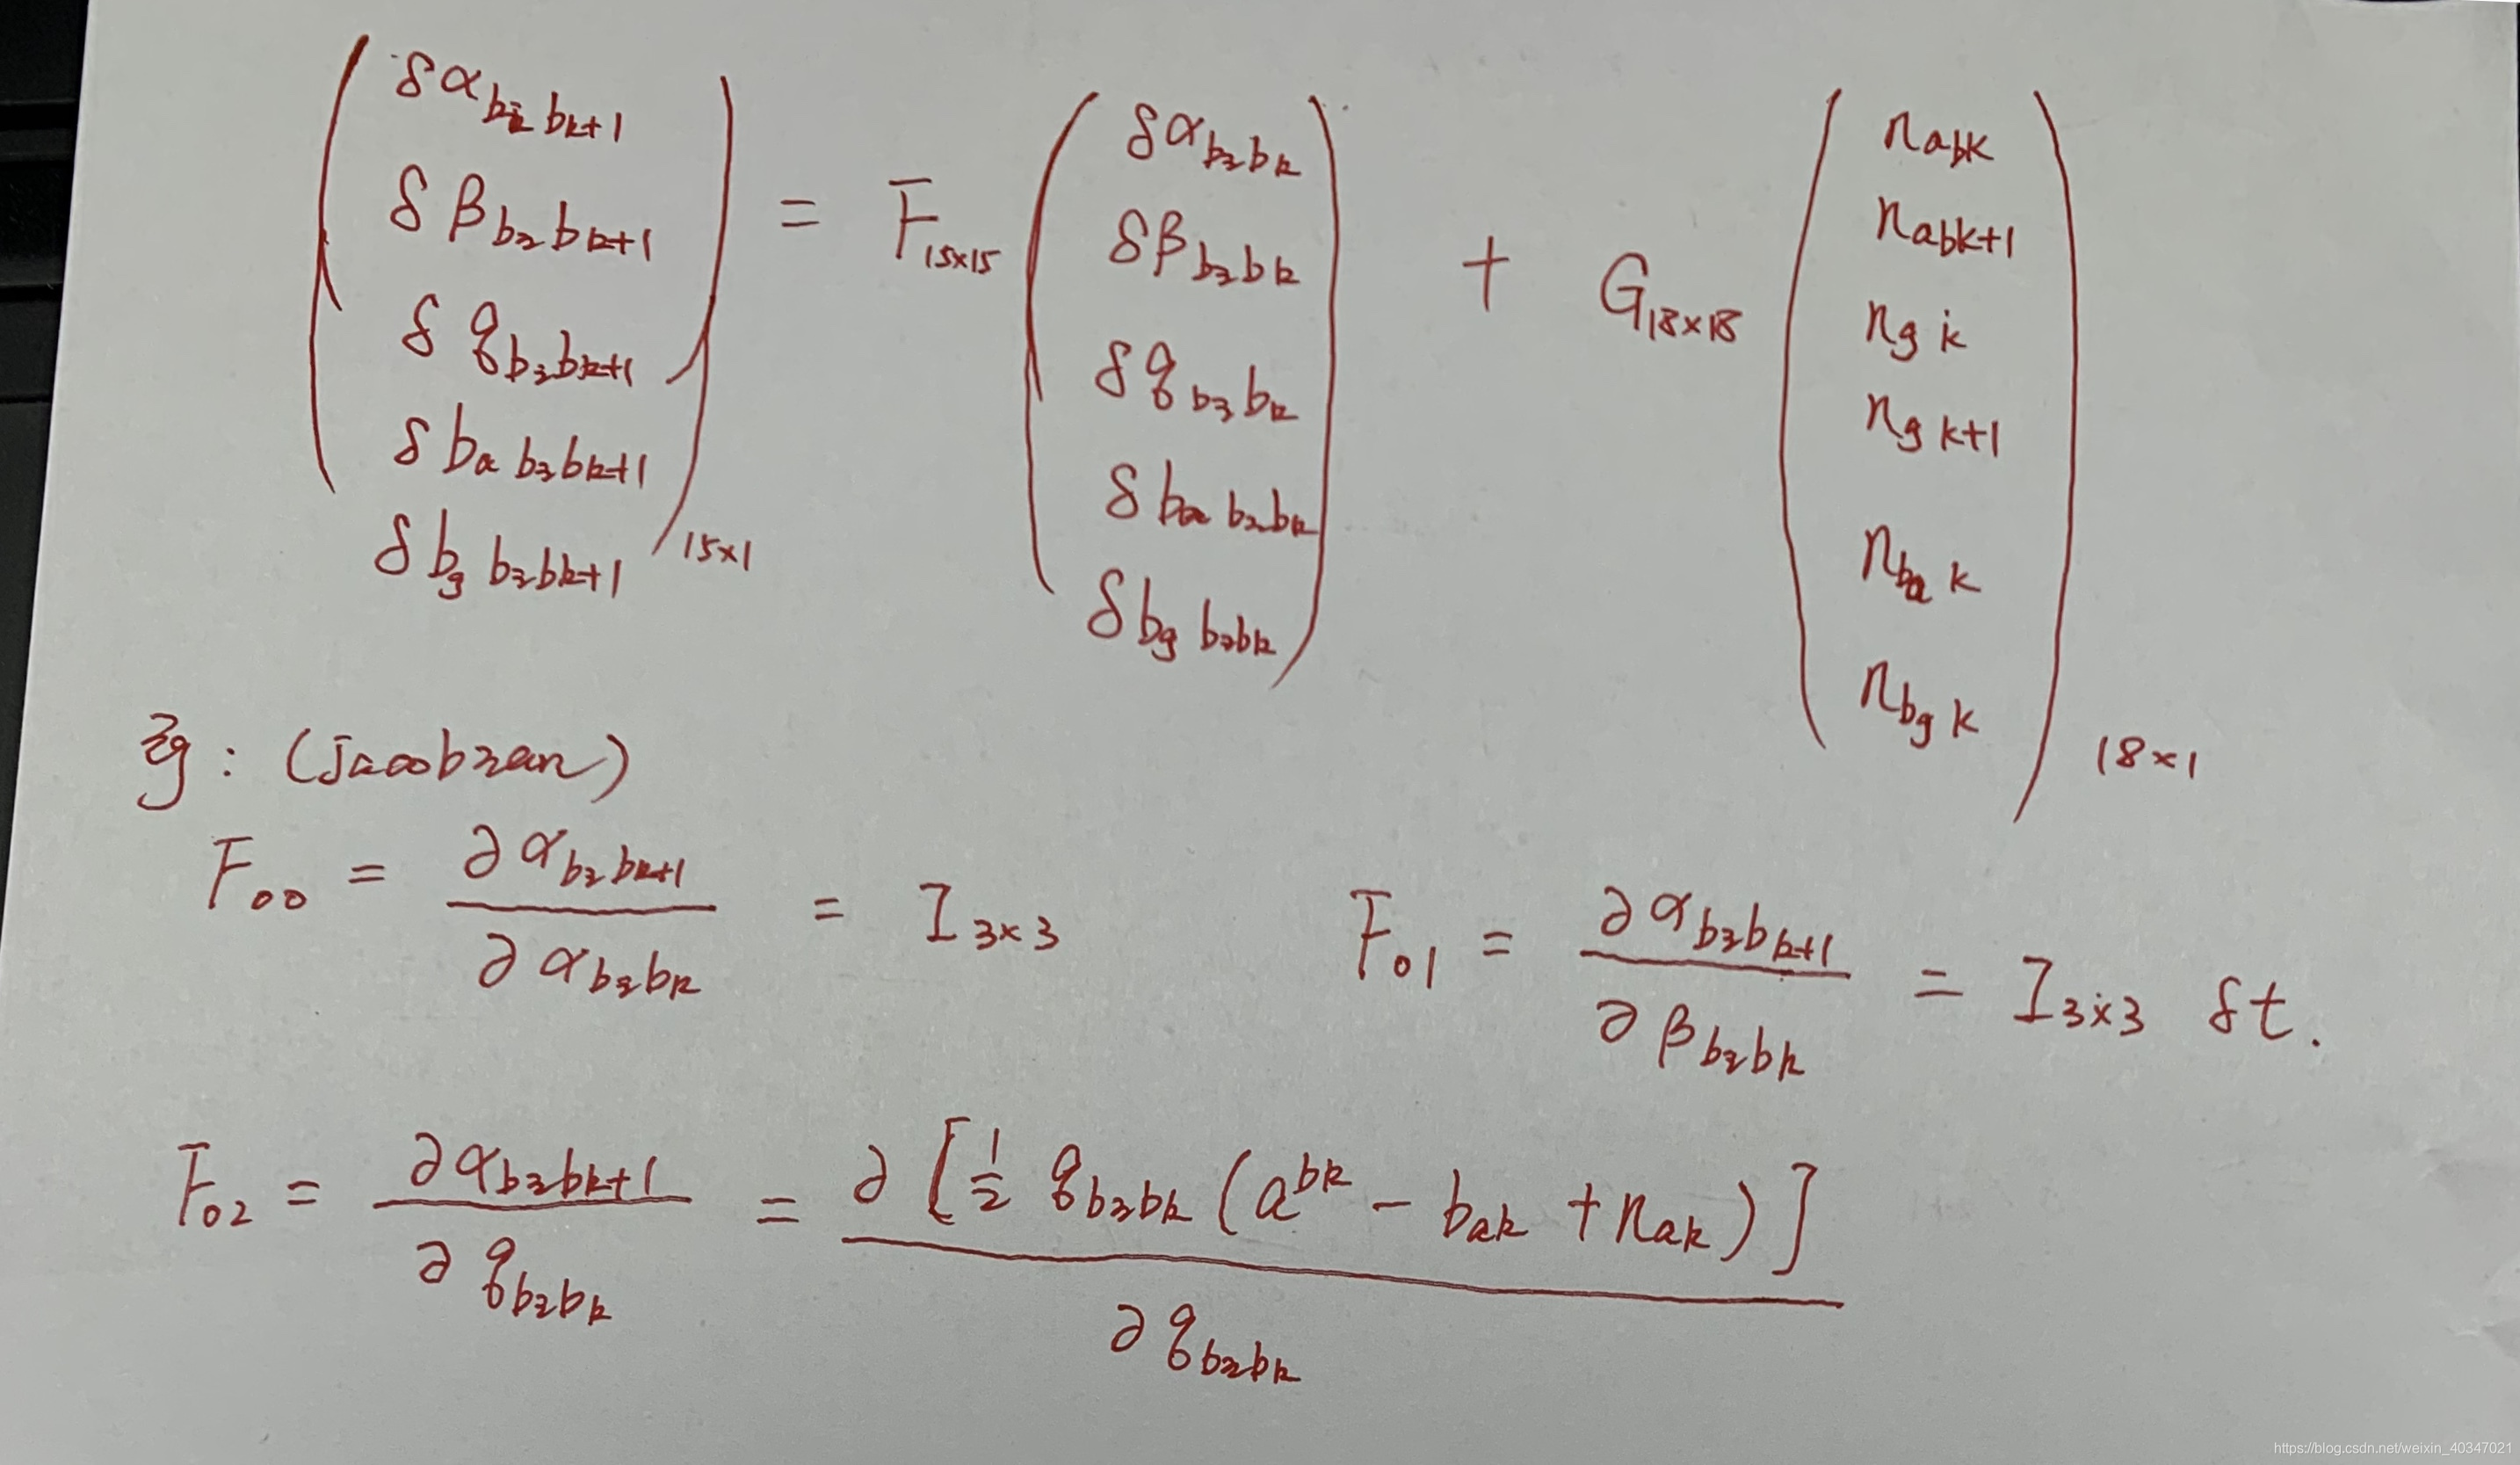 ( δα_{b_i b_{k+1}} ; δβ_{b_i b_{k+1}} ; δq_{b_i b_{k+1}} ; δb_{a b_i b_{k+1}} ; δb_{g b_i b_{k+1}} )_{15×1} = F_{15×15} ( δα_{b_i b_k} ; δβ_{b_i b_k} ; δq_{b_i b_k} ; δb_{a b_i b_k} ; δb_{g b_i b_k} ) + G_{18×18} ( n_{abk} ; n_{abk+1} ; n_{gk} ; n_{gk+1} ; n_{b_a k} ; n_{b_g k} )_{18×1}
Eg : (Jacobian)
F_{00} = ∂α_{b_i b_{k+1}} / ∂α_{b_i b_k} = I_{3×3} F_{01} = ∂α_{b_i b_{k+1}} / ∂β_{b_i b_k} = I_{3×3} δt.
F_{02} = ∂α_{b_i b_{k+1}} / ∂q_{b_i b_k} = ∂[½ q_{b_i b_k} (a^{bk} - b_{ak} + n_{ak})] / ∂q_{b_i b_k}
https://blog.csdn.net/weixin_40347021